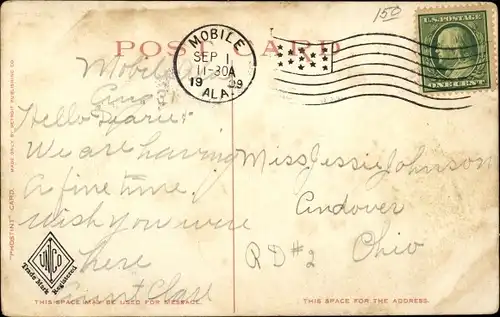 150
U.S. POSTAGE
ONE CENT
POST CARD
MOBILE
SEP 1
11-30A
1909
ALA.
Mobile
Hello
We are having
A fine time.
Wish you were
here
Aunt
Miss Jessie Johnson
Andover
RD #2 Ohio
"PHOSTINT" CARD. MADE ONLY BY DETROIT PUBLISHING CO.
Trade Mark
Registered
THIS SPACE MAY BE USED FOR MESSAGE.
THIS SPACE FOR THE ADDRESS.